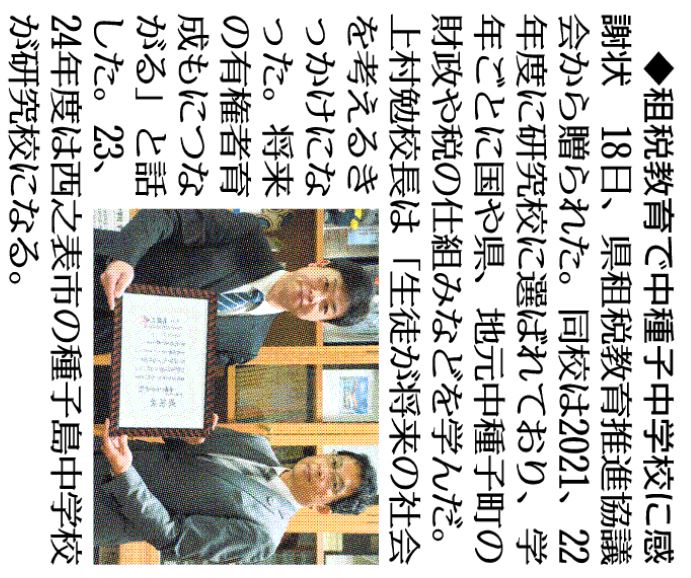 ◆租税教育で中種子中学校に感
謝状　18日、県租税教育推進協議
会から贈られた。同校は2021、22
年度に研究校に選ばれており、学
年ごとに国や県、地元中種子町の
財政や税の仕組みなどを学んだ。
上村勉校長は「生徒が将来の社会
を考えるき
っかけにな
った。将来
の有権者育
成もにつな
がる」と話
した。23、
24年度は西之表市の種子島中学校
が研究校になる。